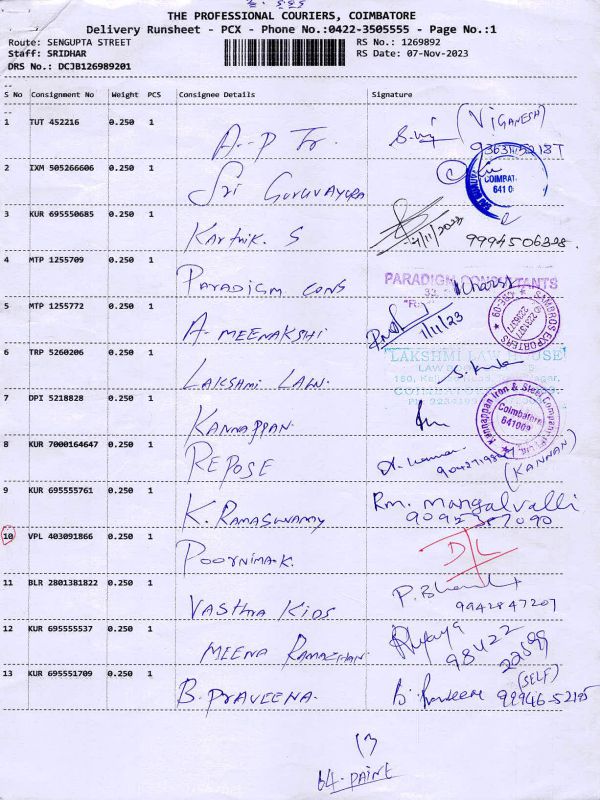 THE PROFESSIONAL COURIERS, COIMBATORE
Delivery Runsheet - PCX - Phone No.:0422-3505555 - Page No.:1
Route: SENGUPTA STREET
RS No.: 1269892
Staff: SRIDHAR
RS Date: 07-Nov-2023
DRS No.: DCJB126989201
S No Consignment No Weight PCS Consignee Details Signature
1 TUT 452216 0.250 1 A.P Tr. (VIGANESH)
2 IXM 505266606 0.250 1 Sri GURUVAYURA COIMBAT 641 0
3 KUR 695550685 0.250 1 Karthik. S 9994506328.
4 MTP 1255709 0.250 1 Paradigm cons PARADIGM CONSULTANTS
5 MTP 1255772 0.250 1 A-MEENAKSHI 1/11/23 SAMBROS EXPORTERS
6 TRP 5260206 0.250 1 LAKSHMI LAW. LAKSHMI LAW HOUSE
7 DPI 5218828 0.250 1 KANNAPPAN. Kannappan Iron & Steel Company Coimbatore
8 KUR 7000164647 0.250 1 REPOSE (KANNAN)
9 KUR 695555761 0.250 1 K. RAMASWAMY Rm. mangalvalli
10 VPL 403091866 0.250 1 POORNIMA.K. D/L
11 BLR 2801381822 0.250 1 VASTHRA KIDS 9942847207
12 KUR 695555537 0.250 1 MEENA 98422 22599
13 KUR 695551709 0.250 1 B. PRAVEENA. (SELF) 99946-52195
13
64-PAINT